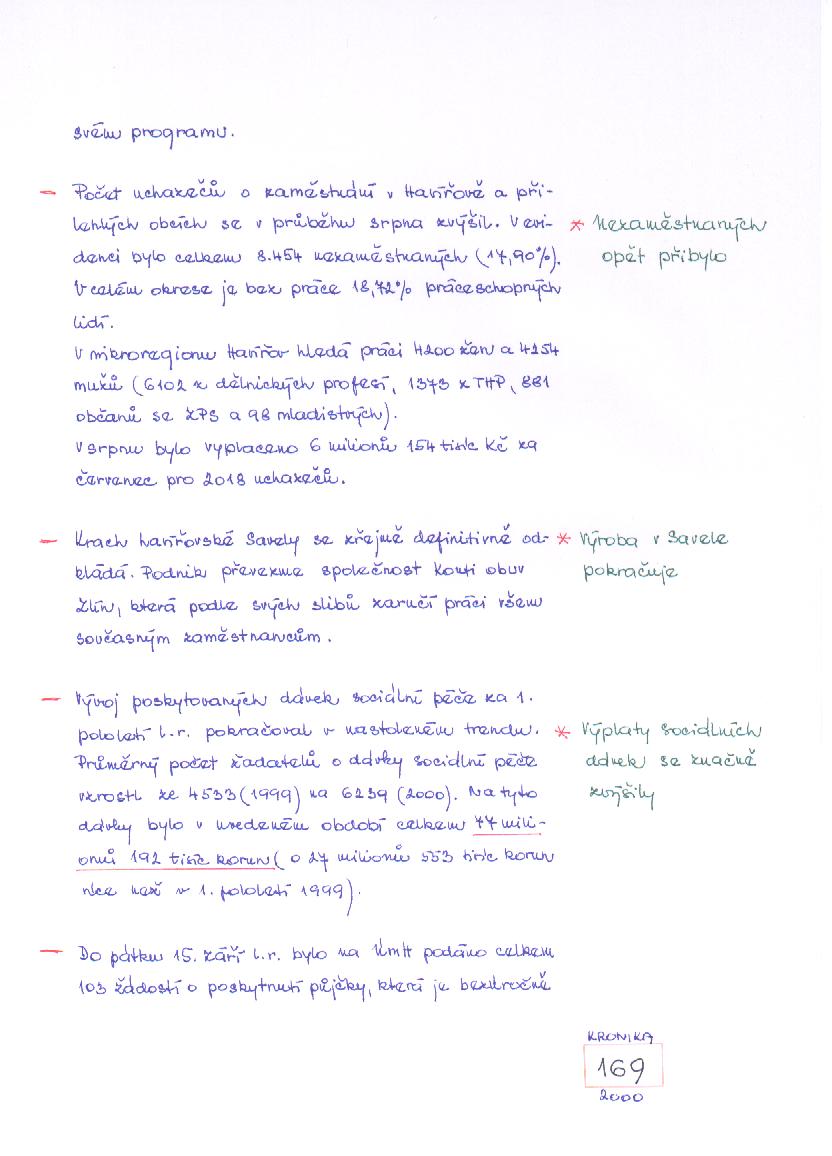 svém programu.
– Počet uchazečů o zaměstnání v Havířově a při-
lehlých obcích se v průběhu srpna zvýšil. V evi-
* Nezaměstnaných
denci bylo celkem 8.454 nezaměstnaných (17,90%).
opět přibylo
V celém okrese je bez práce 18,72% práceschopných
lidí.
V mikroregionu Havířov hledá práci 4200 žen a 4254
mužů (6102 x dělnických profesí, 1373 x THP, 881
občanů se ZPS a 98 mladistvých).
V srpnu bylo vyplaceno 6 milionů 154 tisíc Kč za
červenec pro 2018 uchazečů.
– Krach havířovské Savely se zřejmě definitivně od-
* Výroba v Savele
kládá. Podnik převezme společnost Kouti obuv
pokračuje
Zlín, která podle svých slibů zaručí práci všem
současným zaměstnancům.
– Vývoj poskytovaných dávek sociální péče za 1.
pololetí l.r. pokračoval v nastoleném trendu.
* Výplaty sociálních
Průměrný počet žadatelů o dávky sociální péče
dávek se značně
vzrostl ze 4533 (1999) na 6239 (2000). Na tyto
zvýšily
dávky bylo v uvedeném období celkem 77 mili-
onů 192 tisíc korun (o 27 milionů 553 tisíc korun
více než v 1. pololetí 1999).
– Do pátku 15. září l.r. bylo na ÚmH podáno celkem
103 žádostí o poskytnutí půjčky, která je bezúročně
KRONIKA
169
2000